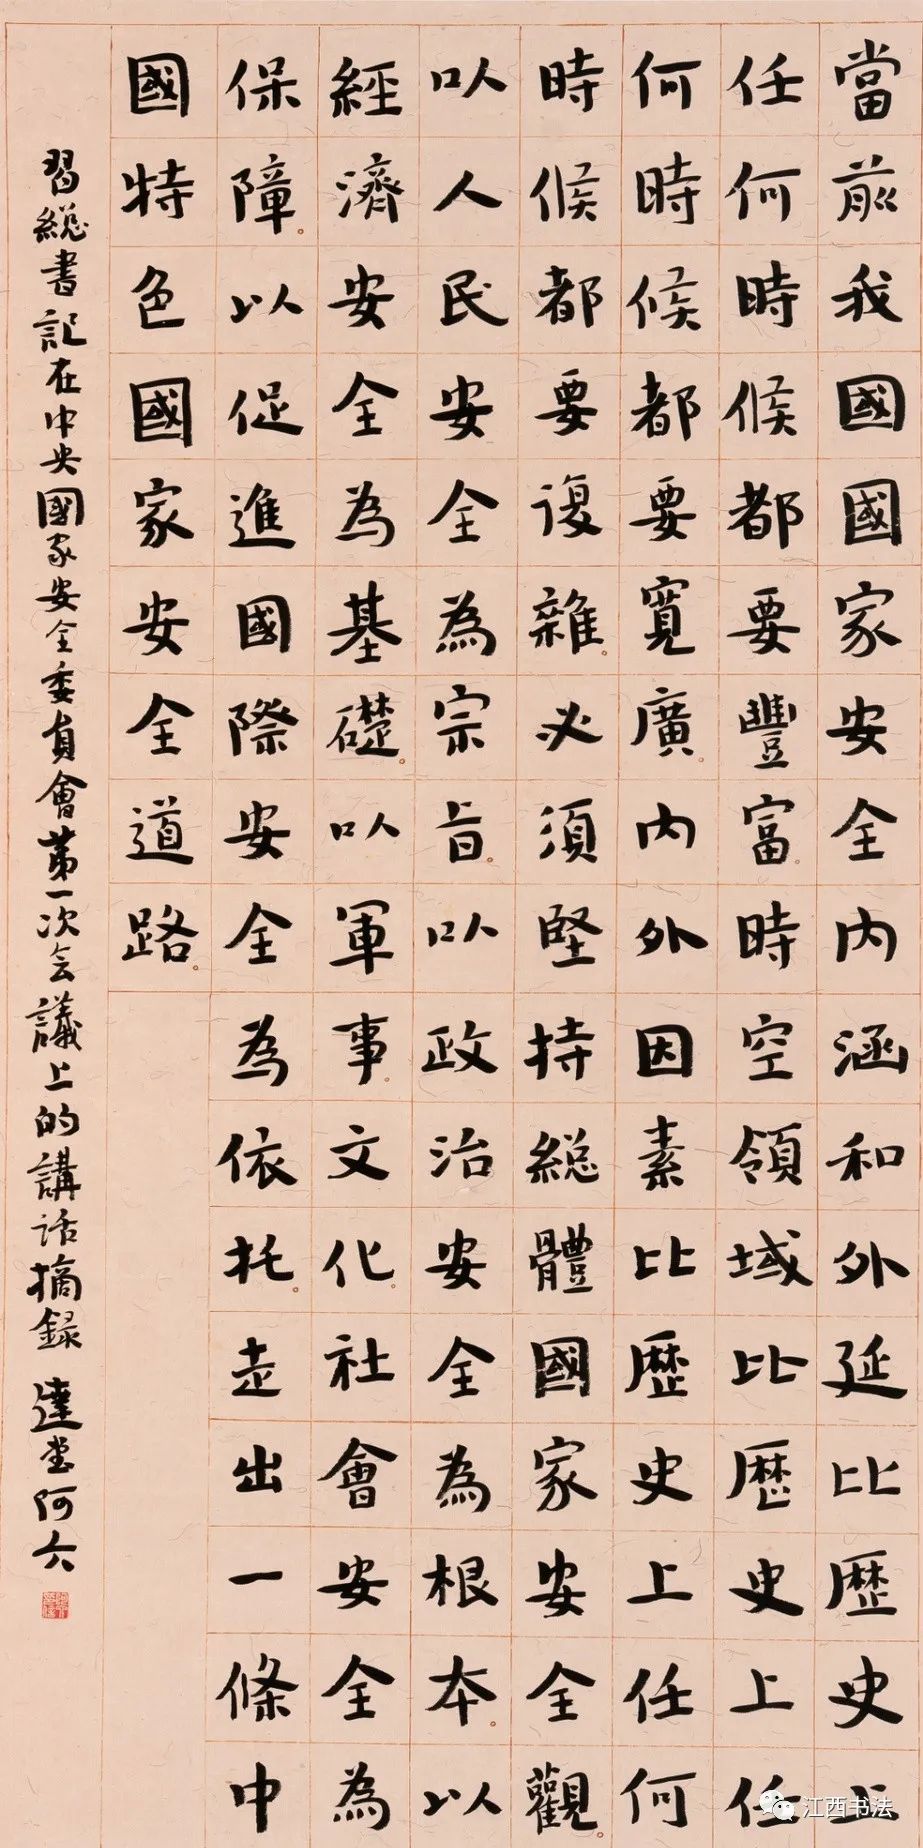 當前我國國家安全内涵和外延比歷史上
任何時候都要豐富。時空領域比歷史上任
何時候都要寬廣。内外因素比歷史上任何
時候都要復雜。必須堅持総體國家安全觀
以人民安全為宗旨。以政治安全為根本。以
經濟安全為基礎。以軍事。文化。社會安全為
保障。以促進國際安全為依托。走出一條中
國特色國家安全道路。
習総書記在中央國家安全委員會第一次会議上的講話摘録 達堂阿六
江西书法